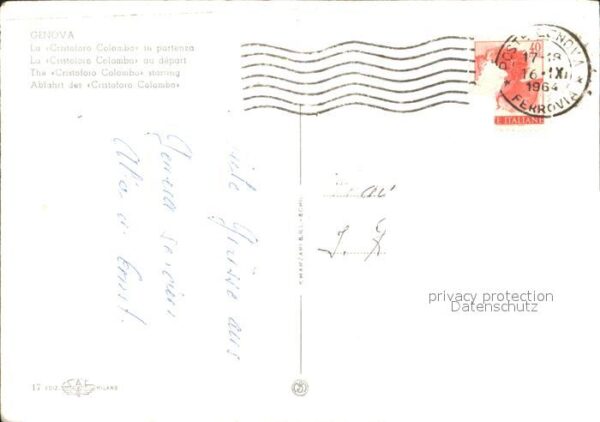 GENOVA
La «Cristoforo Colombo» in partenza
La «Cristoforo Colombo» au départ
The «Cristoforo Colombo» starring
Abfahrt des «Cristoforo Colombo»
POSTE GENOVA
17-18
16 XI
1964
FERROVIA
40
E ITALIANE
viele Grüsse aus
Genova senden
privacy protection
Datenschutz
17 EDIZ. S.A.F. MILANO